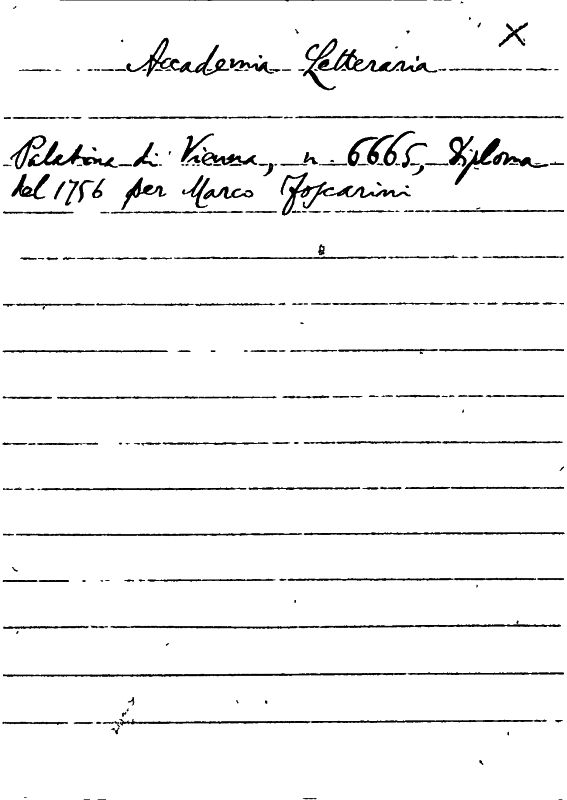 X
Accademia Letteraria
Palatina di Vienna, n. 6665, Diploma
del 1756 per Marco Foscarini